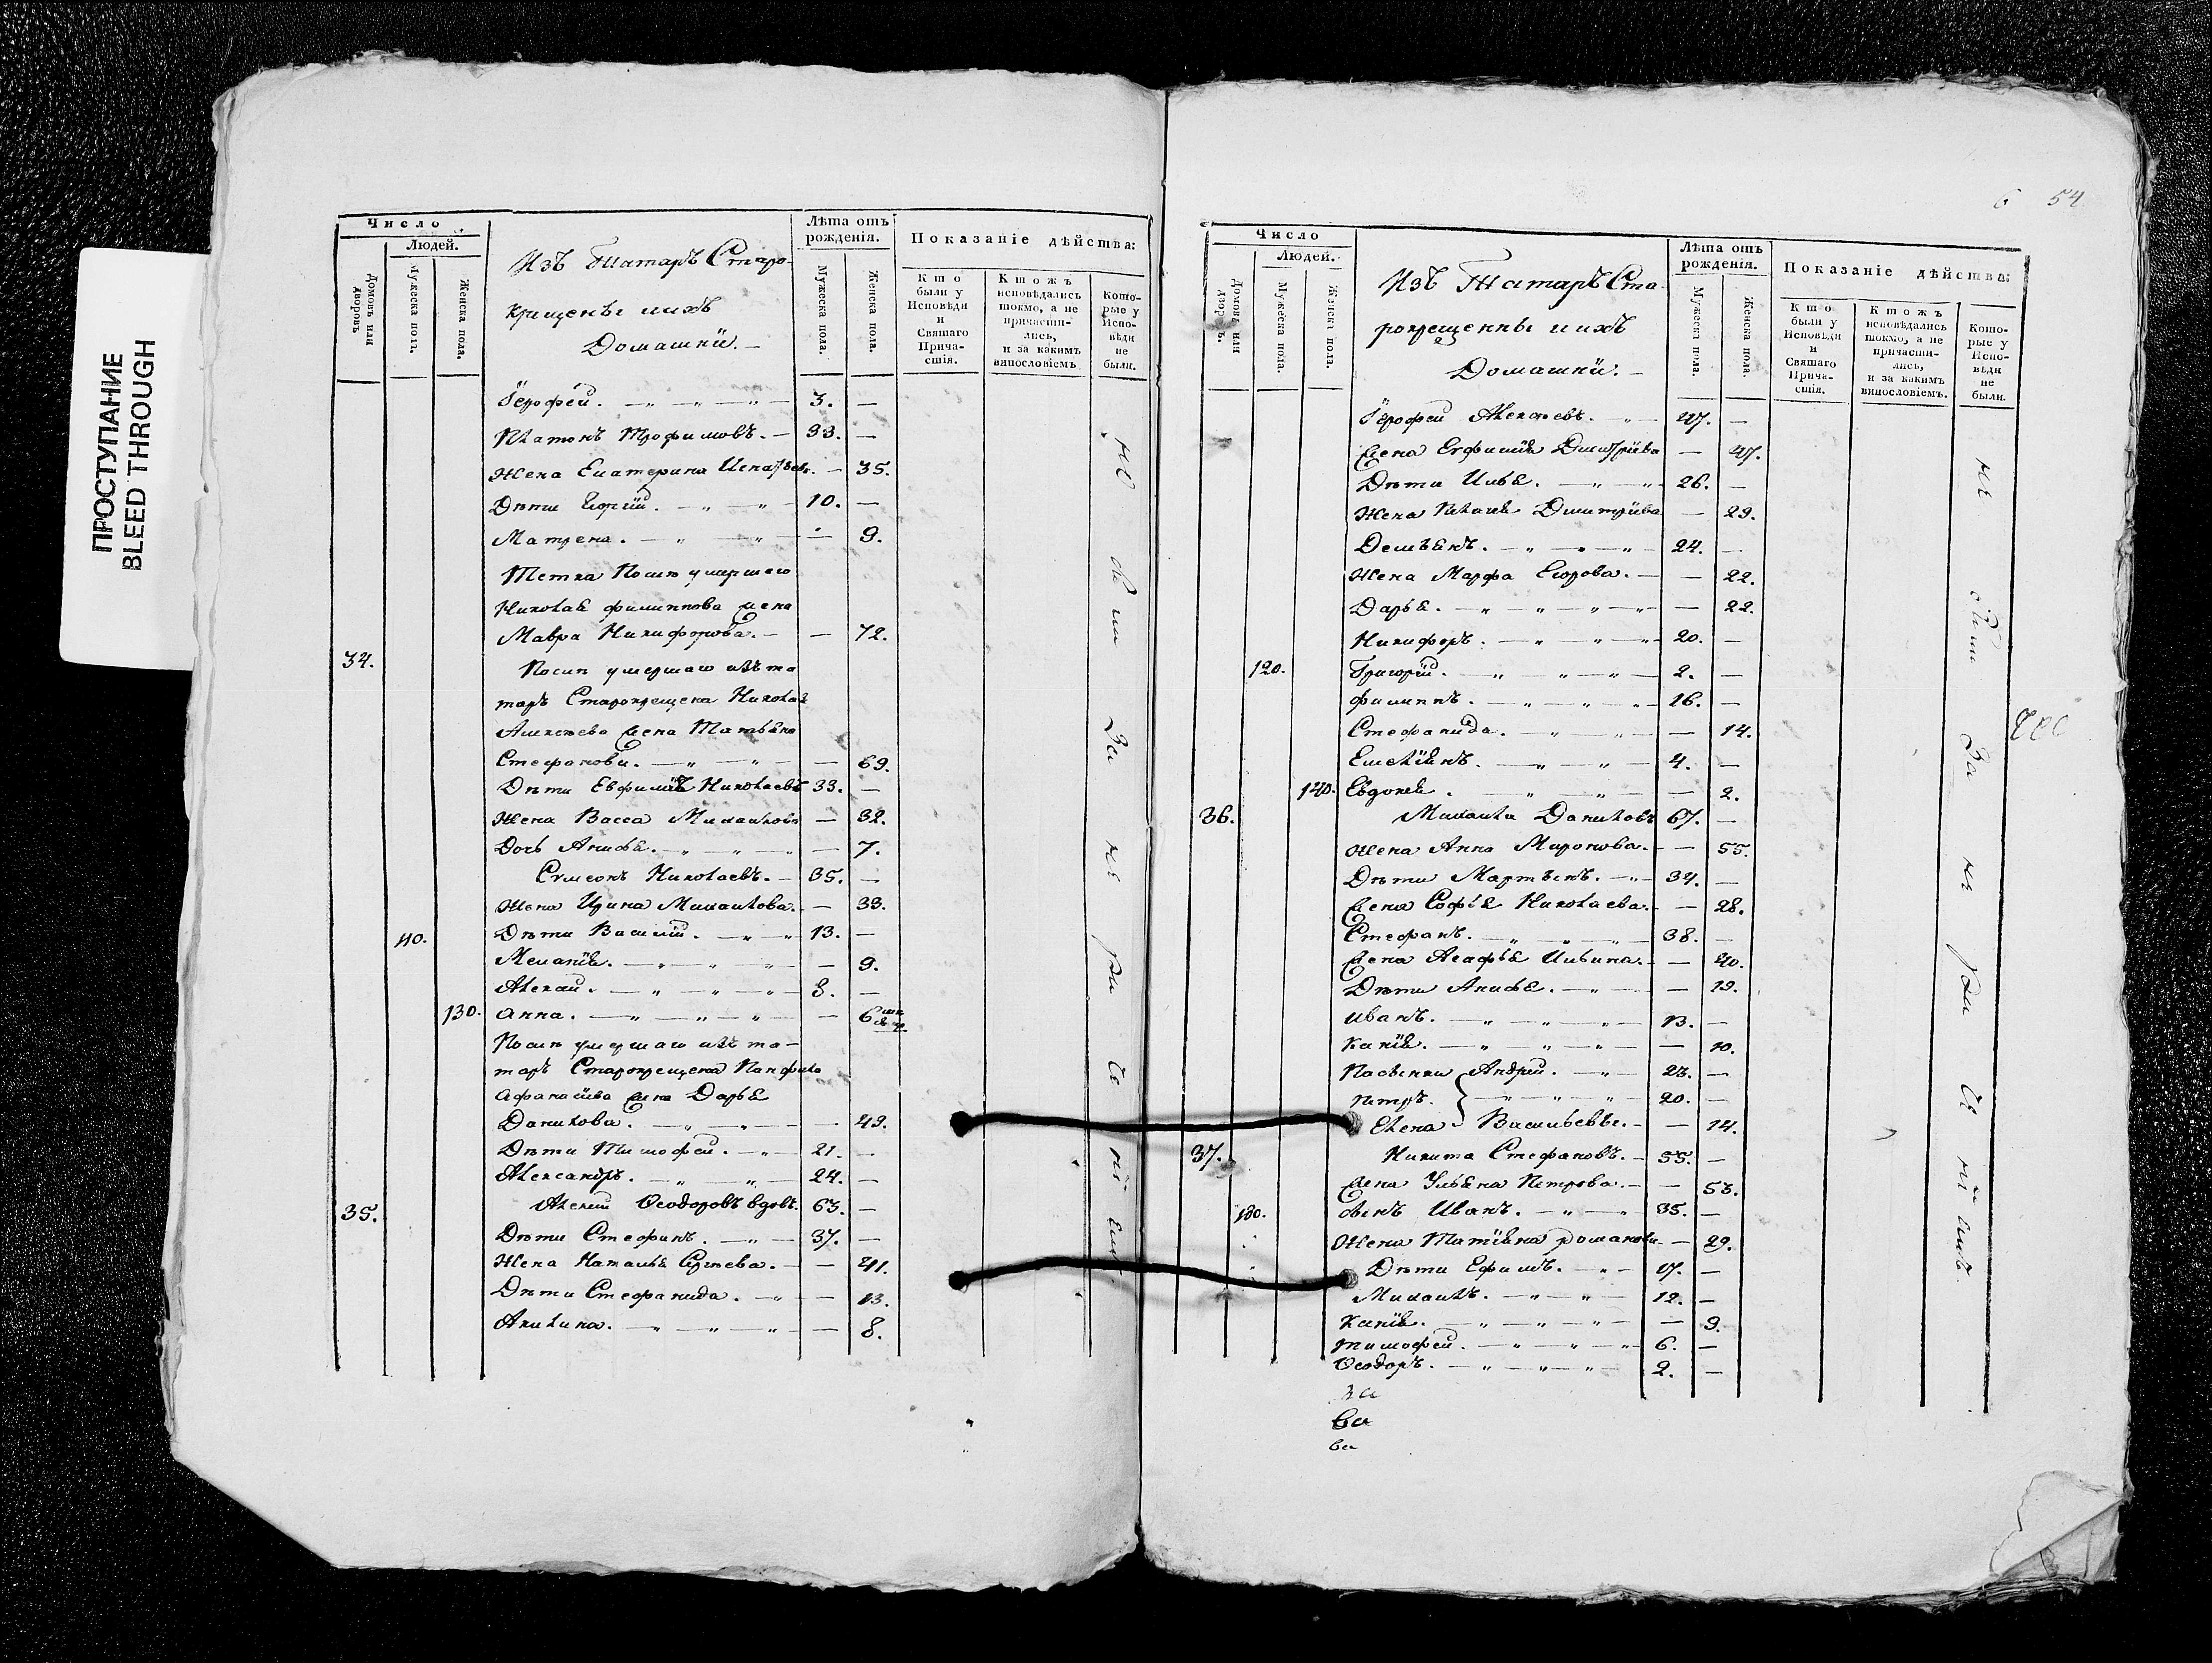 ПРОСТУПАНИЕ
BLEED THROUGH
Число
Людей.
Домовъ или дворовъ
Мужеска пола.
Женска пола.
Изъ Татаръ Старо-
крещены ихъ
Домашнiи. —
Лѣта отъ рожденія.
Мужеска пола.
Женска пола.
Показаніе дѣйства:
Кто были у Исповѣди и Святаго Причастія.
Ктожъ исповѣдались токмо, а не причастились, и за какимъ винословіемъ
Которые у Исповѣди не были.
Ерофей. 3. —
Платонъ Трофимовъ. — 33. —
Жена Екатерина — 35.
Дѣти Георгiй. 10. —
Матрена. — 9.
Тетка Послѣ умершаго
Николая филиппова жена
Мавра Никифорова. — — 72.
34. Послѣ умершаго изъ та
таръ Старокрещена Николая
Алексѣева жена Татьяна
Стефанова. — 69.
Дѣти Евфимiй Николаевъ 33. —
Жена Васса Михайлова — 32.
Дочь Анисья. — 7.
Сѵмеонъ Николаевъ. — 35. —
Жена Ирина Михайлова. — 33.
110. Дѣти Василiй. 13. —
Меланiя. — 9.
Алексѣй. 8. —
130. Анна. — 6
Послѣ умершаго изъ та-
таръ Старокрещена Панфила
Афанасiева жена Дарья
Данилова. — 49.
Дѣти Тимофей. 21. —
Александръ. 24. —
35. Алексѣй Ѳеодоровъ вдовъ. 63. —
Дѣти Стефанъ. 37. —
Жена Наталья Сергѣева. — 41.
Дѣти Стефанида. — 13.
Акилина. — 8.
не были За нерачениемъ
6 54
Число
Людей.
Домовъ или дворовъ.
Мужеска пола.
Женска пола.
Изъ Татаръ Ста-
рокрещенны ихъ
Домашнiи. —
Лѣта отъ рожденія.
Мужеска пола.
Женска пола.
Показаніе дѣйства:
Кто были у Исповѣди и Святаго Причастія.
Ктожъ исповѣдались токмо, а не причастились, и за какимъ винословіемъ.
Которые у Исповѣди не были.
Ерофей Алексѣевъ. 47. —
Жена Евфимiя Дмитрiева — 47.
Дѣти Илья. 26. —
Жена Пелагея Дмитрiева — 29.
Демьянъ. 24. —
Жена Марфа Егорова. — — 22.
Дарья. — 22.
Никифоръ. 20. —
120. Григорiй. 2. —
филиппъ. 16. —
Стефанида. — 14.
Емелiянъ. 4. —
140. Евдокея. — 2.
36. Михайла Даниловъ 67. —
Жена Анна Миронова. — — 55.
Дѣти Мартынъ. 34. —
Жена Софья Николаева. — — 28.
Стефанъ. 38. —
Жена Агафья Ильина. — — 40.
Дѣти Анисья. — 19.
Иванъ. 13. —
Ксенiя. — 10.
Пасынки Андрей. 23. —
Петръ. 20. —
Елена Васильевы. — — 14.
37. Никита Стефановъ. — 55. —
Жена Ульяна Петрова. — — 53.
130. сынъ Иванъ. 35. —
Жена Татiяна романова — 29.
Дѣти Ефимъ. 17. —
Михаилъ. 12. —
Ксенiя. — 9.
Тимофей. 6. —
Ѳеодоръ. 2. —
не были За нерачениемъ.
за
ва
ва